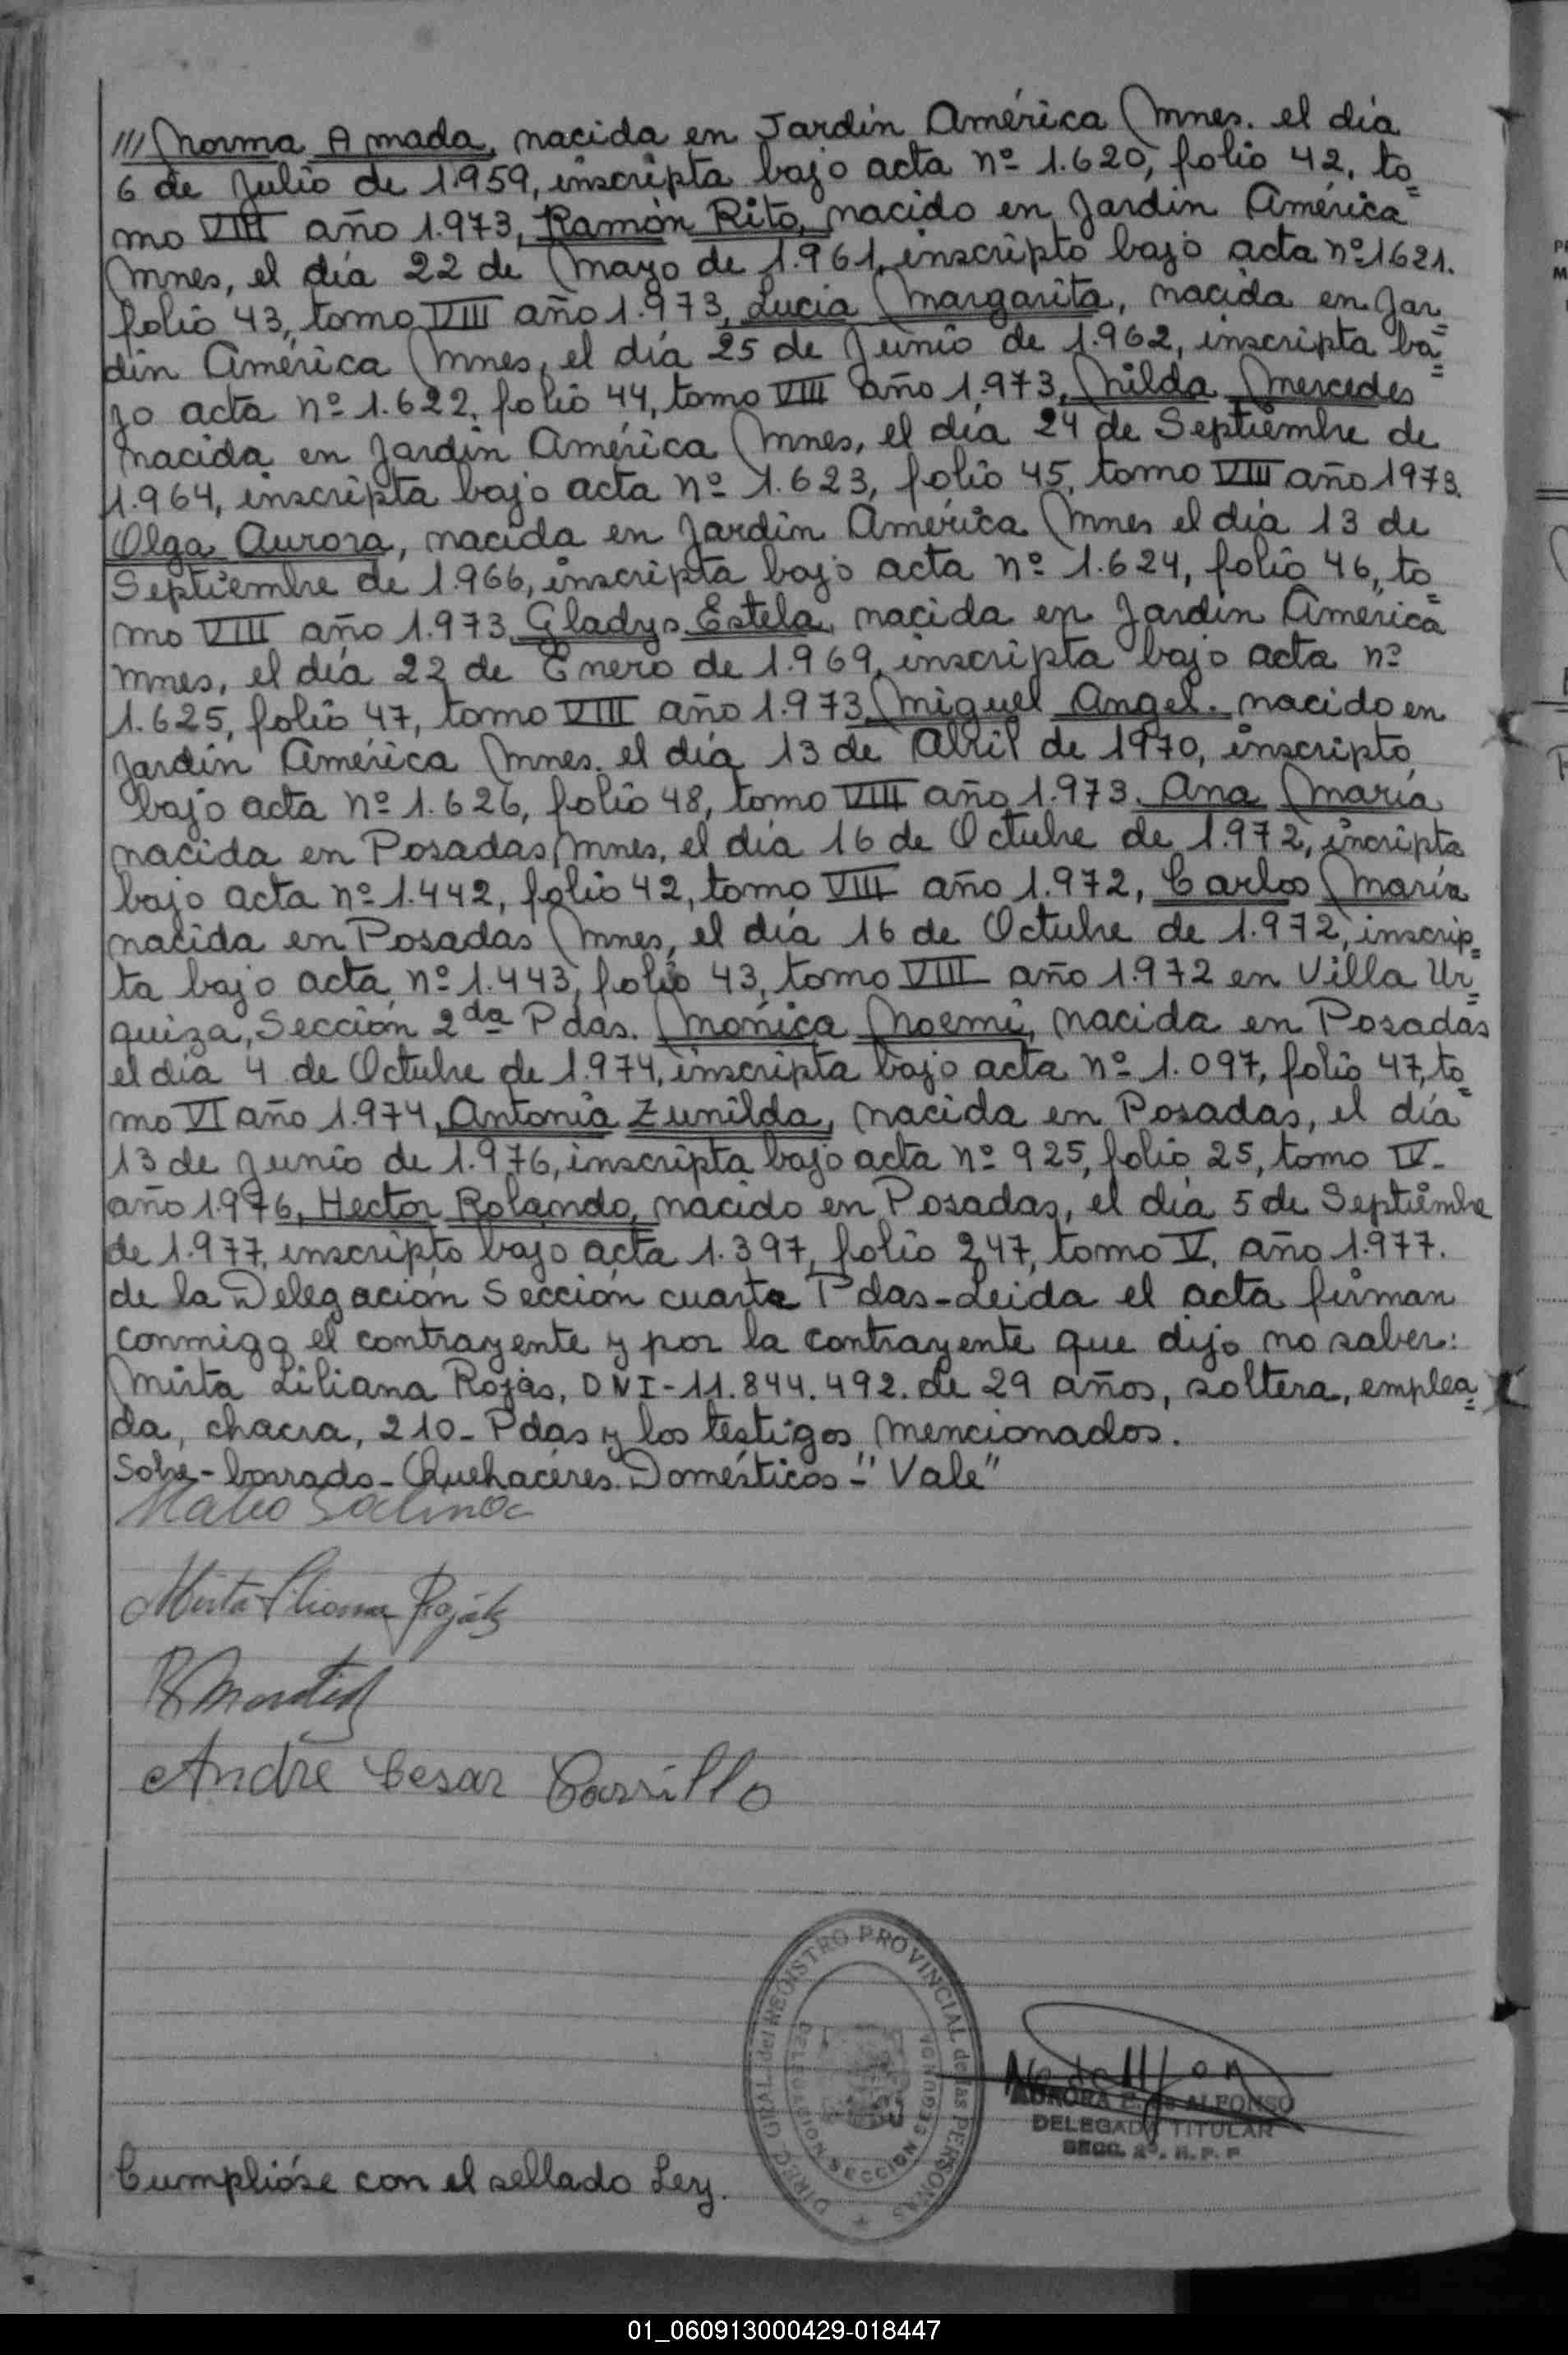 /// Norma Amada, nacida en Jardín América Mnes. el día
6 de Julio de 1.959, inscripta bajo acta nº 1.620, folio 42, to=
mo VIII año 1.973, Ramón Rito, nacido en Jardín América
Mnes, el día 22 de Mayo de 1.961, inscripto bajo acta nº 1621.
folio 43, tomo VIII año 1.973, Lucia Margarita, nacida en Jar=
din América Mnes, el día 25 de Junio de 1.962, inscripta ba=
jo acta nº 1.622, folio 44, tomo VIII año 1.973, Nilda Mercedes
nacida en Jardín América Mnes, el día 24 de Septiembre de
1.964, inscripta bajo acta nº 1.623, folio 45, tomo VIII año 1973.
Olga Aurora, nacida en Jardín América Mnes el día 13 de
Septiembre de 1.966, inscripta bajo acta nº 1.624, folio 46, to=
mo VIII año 1.973, Gladys Estela, nacida en Jardín América
Mnes, el día 22 de Enero de 1.969, inscripta bajo acta nº
1.625, folio 47, tomo VIII año 1.973, Miguel Angel. nacido en
Jardín América Mnes. el día 13 de Abril de 1970, inscripto
bajo acta nº 1.626, folio 48, tomo VIII año 1.973. Ana María,
nacida en Posadas Mnes, el día 16 de Octubre de 1.972, incripta
bajo acta nº 1.442, folio 42, tomo VIII año 1.972, Carlos María
nacida en Posadas Mnes, el día 16 de Octubre de 1.972, inscrip=
ta bajo acta nº 1.443, folio 43, tomo VIII año 1.972 en Villa Ur=
quiza, Sección 2da Pdas. Mónica Noemi, nacida en Posadas
el día 4 de Octubre de 1.974, inscripta bajo acta nº 1.097, folio 47, to=
mo VI año 1.974, Antonia Zunilda, nacida en Posadas, el día
13 de Junio de 1.976, inscripta bajo acta nº 925, folio 25, tomo IV-
año 1.976, Hector Rolando, nacido en Posadas, el día 5 de Septiembre
de 1.977, inscripto bajo acta 1.397, folio 247, tomo V, año 1.977.
de la Delegación Sección cuarta Pdas-Leida el acta firman
conmigo el contrayente y por la contrayente que dijo no saber:
Mirta Liliana Rojas, DNI-11.844.492. de 29 años, soltera, emplea=
da, chacra, 210- Pdas y los testigos mencionados.
Sobre-borrado-Quehaceres Domésticos-"Vale"
Mateo Salinas
Mirta Liliana Rojas
André Cesar Carrillo
DIREC. GRAL. del REGISTRO PROVINCIAL de las PERSONAS
DELEGACION SECCION SEGUNDA
AURORA P. de ALFONSO
DELEGADA TITULAR
SECC. 2ª. R. P. P
Cumplióse con el sellado Ley.
01_060913000429-018447